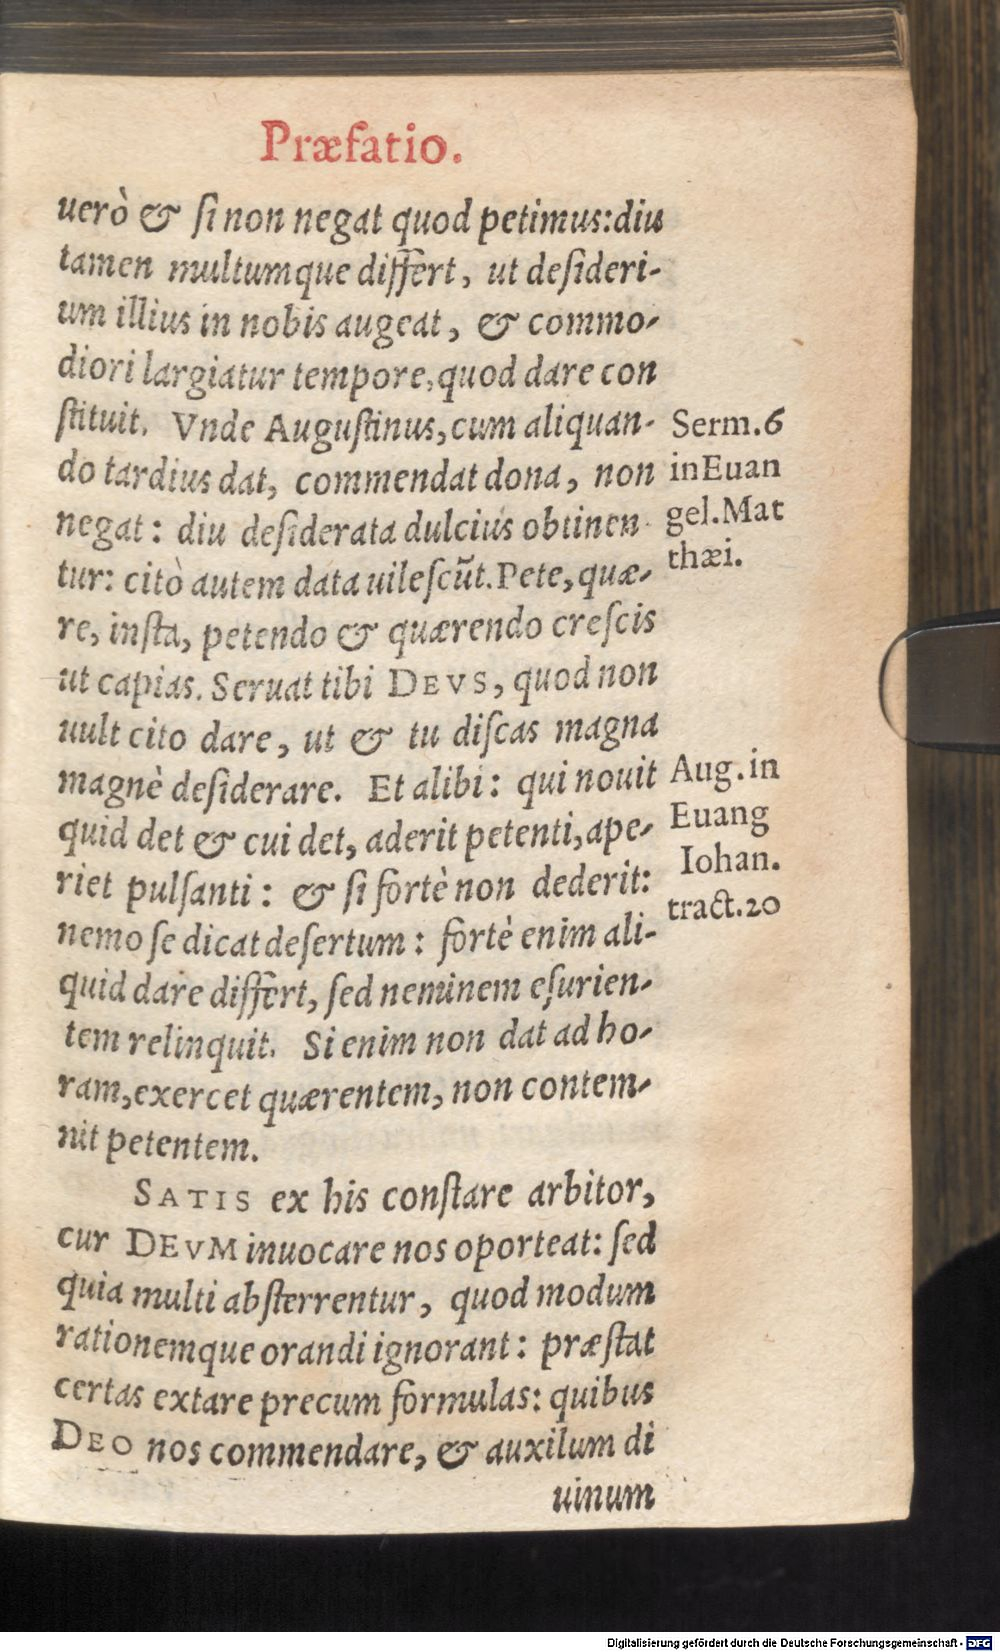 Præfatio.
uerò & ſi non negat quod petimus: diu
tamen multumque differt, ut deſideri-
um illius in nobis augeat, & commo-
diori largiatur tempore, quod dare con
ſtituit. Vnde Auguſtinus, cum aliquan-
do tardius dat, commendat dona, non
negat: diu deſiderata dulcius obtinen-
tur: citò autem data uileſcũt. Pete, quæ-
re, inſta, petendo & quærendo creſcis
ut capias. Seruat tibi DEVS, quod non
uult cito dare, ut & tu diſcas magna
magnè deſiderare. Et alibi: qui nouit
quid det & cui det, aderit petenti, ape-
riet pulſanti: & ſi fortè non dederit:
nemo ſe dicat deſertum: fortè enim ali-
quid dare differt, ſed neminem eſurien-
tem relinquit. Si enim non dat ad ho-
ram, exercet quærentem, non contem-
nit petentem.
SATIS ex his conſtare arbitor,
cur DEVM inuocare nos oporteat: ſed
quia multi abſterrentur, quod modum
rationemque orandi ignorant: præſtat
certas extare precum formulas: quibus
DEO nos commendare, & auxilum di
uinum
Serm. 6
in Euan
gel. Mat
thæi.
Aug. in
Euang
Iohan.
tract. 20
Digitalisierung gefördert durch die Deutsche Forschungsgemeinschaft - DFG